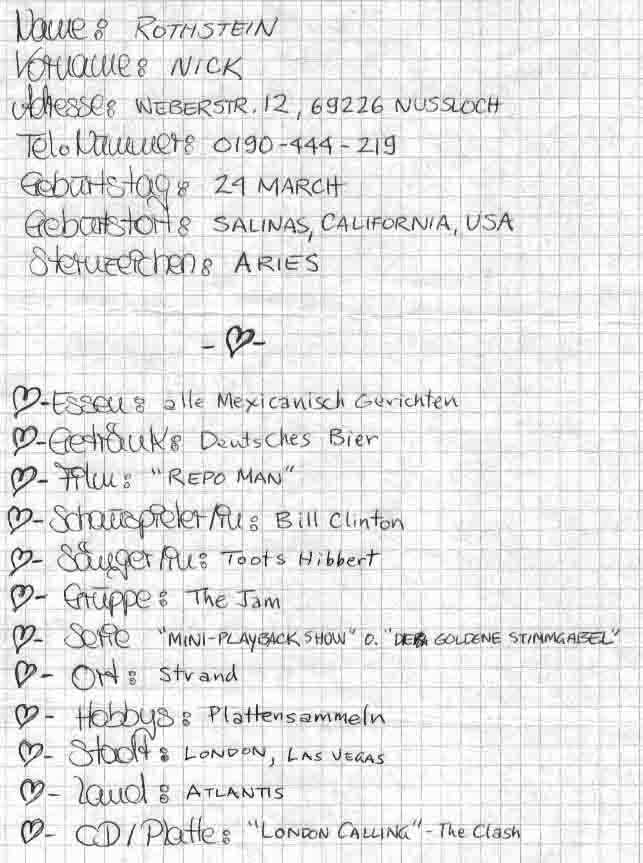 Name: ROTHSTEIN
Vorname: NICK
Adresse: WEBERSTR. 12, 69226 NUSSLOCH
Tel. Nummer: 0190-444-219
Geburtstag: 24 MARCH
Geburtstort: SALINAS, CALIFORNIA, USA
Sternzeichen: ARIES
-♡-
♡-Essen: alle Mexicanisch Gerichten
♡-Getränk: Deutsches Bier
♡-Film: "REPO MAN"
♡-Schauspieler/in: Bill Clinton
♡-Sänger/in: Toots Hibbert
♡-Gruppe: The Jam
♡-Serie "MINI-PLAYBACK SHOW" O. "DER GOLDENE STIMMGABEL"
♡-Ort: Strand
♡-Hobbys: Plattensammeln
♡-Stadt: LONDON, LAS VEGAS
♡-Land: ATLANTIS
♡-CD/Platte: "LONDON CALLING" - The Clash